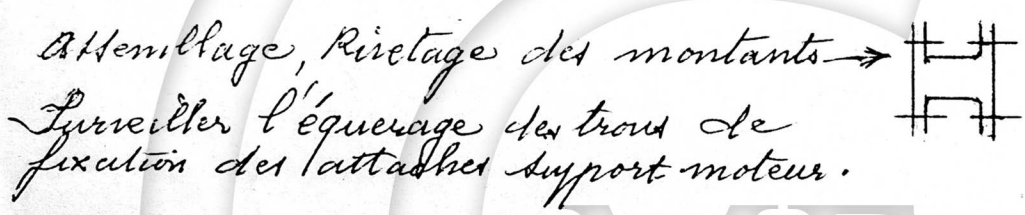 Assemblage, Rivetage des montants →
Surveiller l'équerage des trous de
fixation des attaches support-moteur.